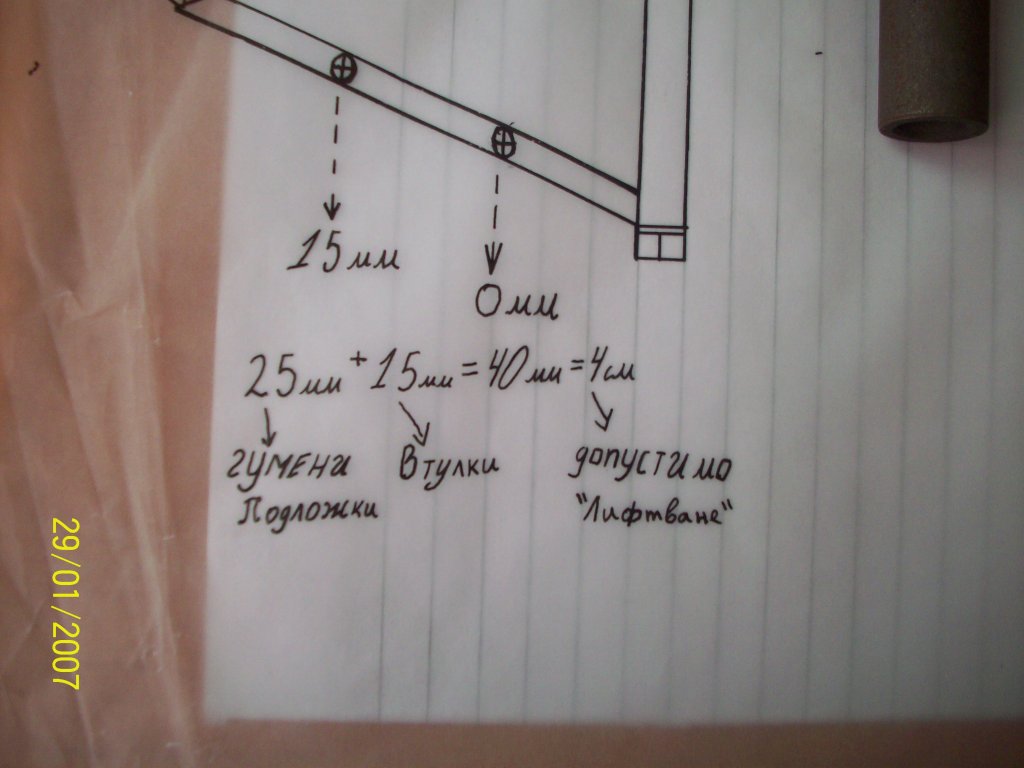 15мм
0мм
25мм + 15мм = 40мм = 4см
гумени Втулки допустимо
Подложки "Лифтване"
29/01/2007